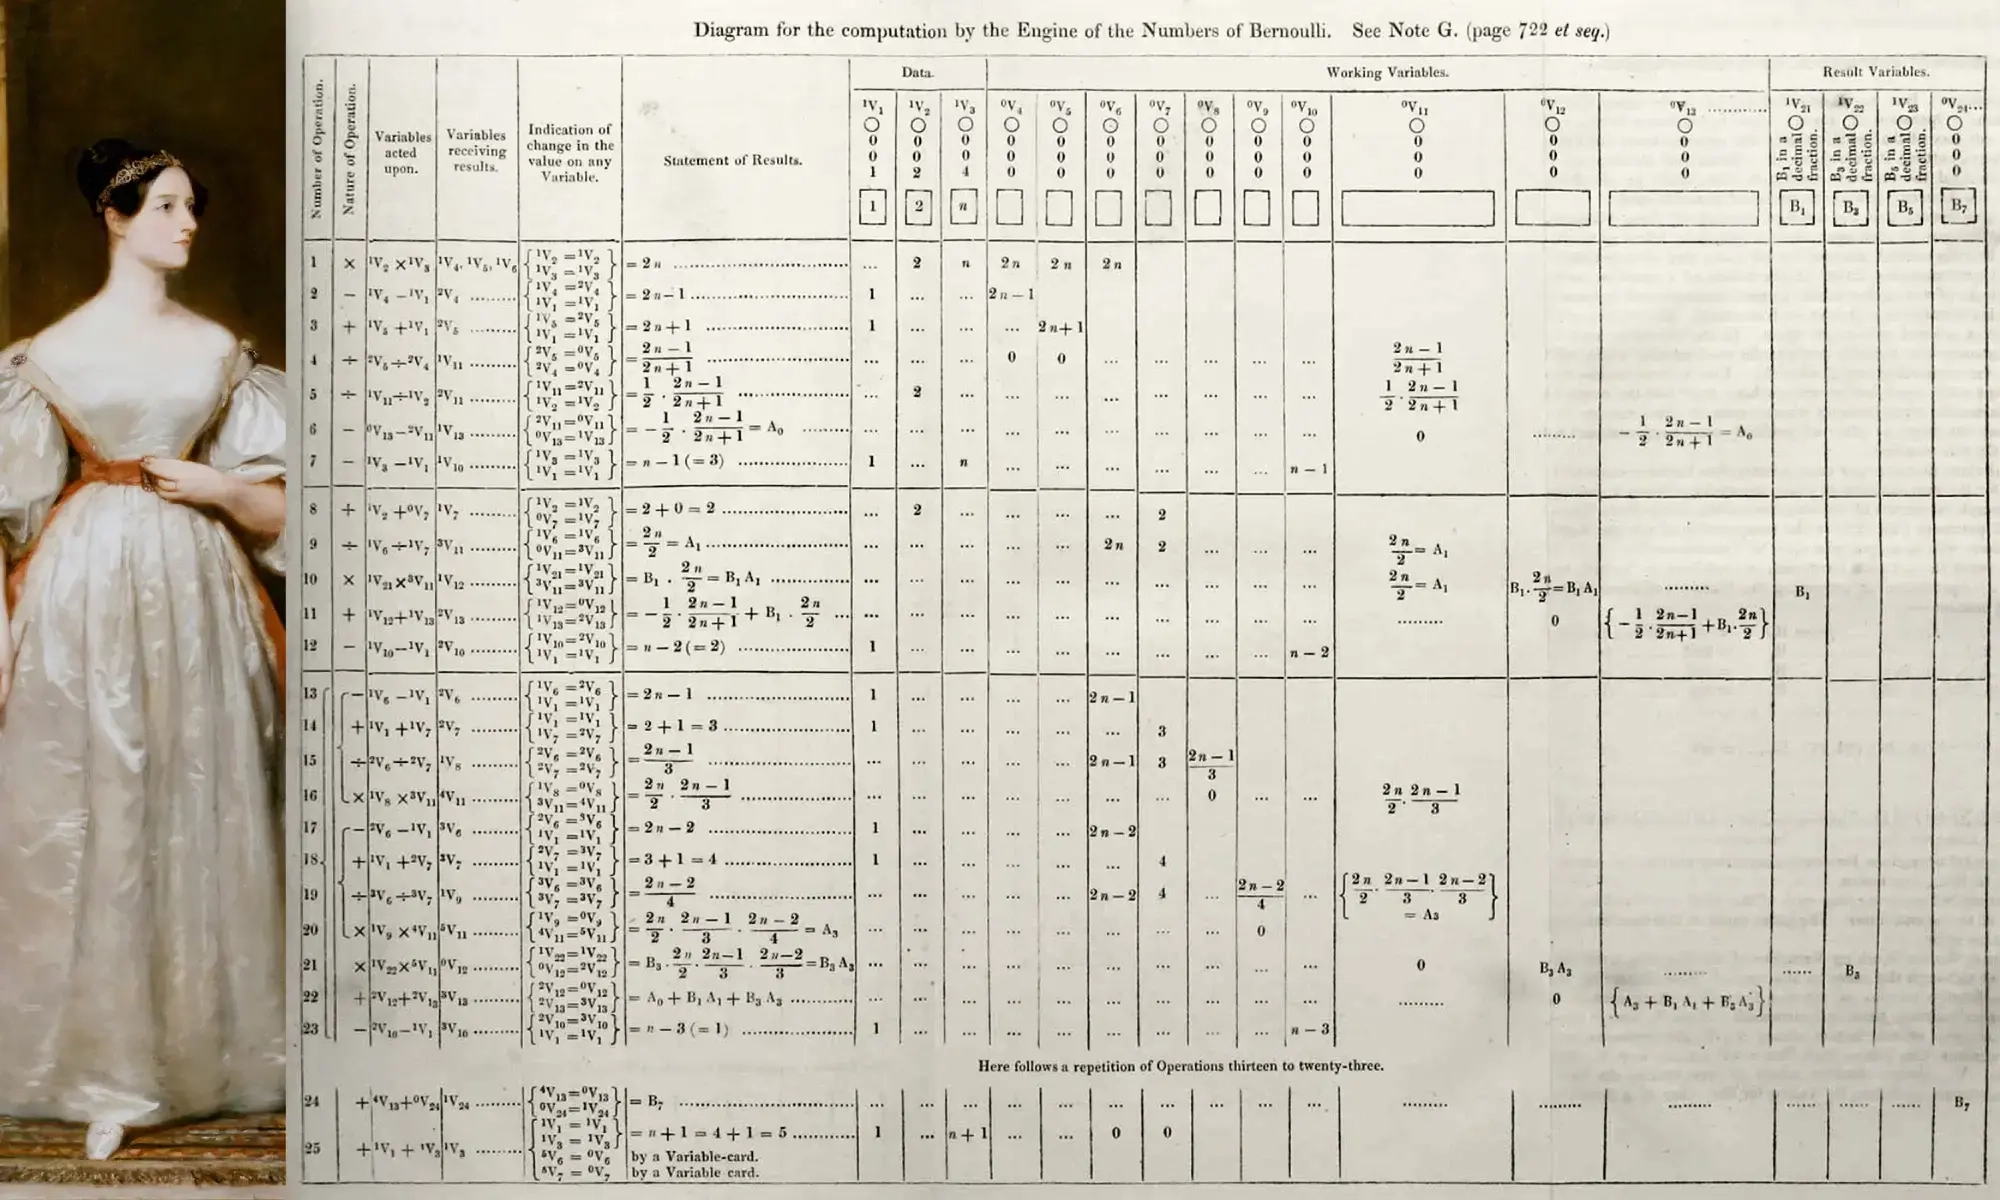 Diagram for the computation by the Engine of the Numbers of Bernoulli. See Note G. (page 722 et seq.)
Number of Operation.
Nature of Operation.
Variables acted upon.
Variables receiving results.
Indication of change in the value on any Variable.
Statement of Results.
Data.
Working Variables.
Result Variables.
¹V₁ ¹V₂ ¹V₃ ⁰V₄ ⁰V₅ ⁰V₆ ⁰V₇ ⁰V₈ ⁰V₉ ⁰V₁₀ ⁰V₁₁ ⁰V₁₂ ⁰V₁₃ ............ ¹V₂₁ ¹V₂₂ ¹V₂₃ ⁰V₂₄...
○ ○ ○ ○ ○ ○ ○ ○ ○ ○ ○ ○ ○ ○ ○ ○ ○
0 0 0 0 0 0 0 0 0 0 0 0 0 B₁ in a decimal fraction. B₃ in a decimal fraction. B₅ in a decimal fraction. 0
0 0 0 0 0 0 0 0 0 0 0 0 0 0
1 2 4 0 0 0 0 0 0 0 0 0 0 0
1 2 n B₁ B₃ B₅ B₇
1 × ¹V₂ × ¹V₃ ¹V₄, ¹V₅, ¹V₆ { ¹V₂ = ¹V₂ ¹V₃ = ¹V₃ } = 2n ... 2 n 2n 2n 2n
2 − ¹V₄ − ¹V₁ ²V₄ { ¹V₄ = ²V₄ ¹V₁ = ¹V₁ } = 2n − 1 1 ... ... 2n − 1
3 + ¹V₅ + ¹V₁ ²V₅ { ¹V₅ = ²V₅ ¹V₁ = ¹V₁ } = 2n + 1 1 ... ... ... 2n + 1
4 ÷ ²V₅ ÷ ²V₄ ¹V₁₁ { ²V₅ = ⁰V₅ ²V₄ = ⁰V₄ } = (2n − 1)/(2n + 1) ... ... ... 0 0 ... ... ... ... ... (2n − 1)/(2n + 1)
5 ÷ ¹V₁₁ ÷ ¹V₂ ²V₁₁ { ¹V₁₁ = ²V₁₁ ¹V₂ = ¹V₂ } = 1/2 . (2n − 1)/(2n + 1) ... 2 ... ... ... ... ... ... ... ... 1/2 . (2n − 1)/(2n + 1)
6 − ⁰V₁₃ − ²V₁₁ ¹V₁₃ { ²V₁₁ = ⁰V₁₁ ⁰V₁₃ = ¹V₁₃ } = − 1/2 . (2n − 1)/(2n + 1) = A₀ ... ... ... ... ... ... ... ... ... ... 0 ......... − 1/2 . (2n − 1)/(2n + 1) = A₀
7 − ¹V₃ − ¹V₁ ¹V₁₀ { ¹V₃ = ¹V₃ ¹V₁ = ¹V₁ } = n − 1 (= 3) 1 ... n ... ... ... ... ... ... n − 1
8 + ¹V₂ + ⁰V₇ ¹V₇ { ¹V₂ = ¹V₂ ⁰V₇ = ¹V₇ } = 2 + 0 = 2 ... 2 ... ... ... ... 2
9 ÷ ¹V₆ ÷ ¹V₇ ³V₁₁ { ¹V₆ = ¹V₆ ⁰V₁₁ = ³V₁₁ } = 2n/2 = A₁ ... ... ... ... ... 2n 2 ... ... ... 2n/2 = A₁
10 × ¹V₂₁ × ³V₁₁ ¹V₁₂ { ¹V₂₁ = ¹V₂₁ ³V₁₁ = ³V₁₁ } = B₁ . 2n/2 = B₁ A₁ ... ... ... ... ... ... ... ... ... ... 2n/2 = A₁ B₁ . 2n/2 = B₁ A₁ ......... B₁
11 + ¹V₁₂ + ¹V₁₃ ²V₁₃ { ¹V₁₂ = ⁰V₁₂ ¹V₁₃ = ²V₁₃ } = − 1/2 . (2n − 1)/(2n + 1) + B₁ . 2n/2 ... ... ... ... ... ... ... ... ... ... ......... 0 { − 1/2 . (2n − 1)/(2n + 1) + B₁ . 2n/2 }
12 − ¹V₁₀ − ¹V₁ ²V₁₀ { ¹V₁₀ = ²V₁₀ ¹V₁ = ¹V₁ } = n − 2 (= 2) 1 ... ... ... ... ... ... ... ... n − 2
13 − ¹V₆ − ¹V₁ ²V₆ { ¹V₆ = ²V₆ ¹V₁ = ¹V₁ } = 2n − 1 1 ... ... ... ... 2n − 1
14 + ¹V₁ + ¹V₇ ²V₇ { ¹V₁ = ¹V₁ ¹V₇ = ²V₇ } = 2 + 1 = 3 1 ... ... ... ... ... 3
15 ÷ ²V₆ ÷ ²V₇ ¹V₈ { ²V₆ = ²V₆ ²V₇ = ²V₇ } = (2n − 1)/3 ... ... ... ... ... 2n − 1 3 (2n − 1)/3
16 × ¹V₈ × ³V₁₁ ⁴V₁₁ { ¹V₈ = ⁰V₈ ³V₁₁ = ⁴V₁₁ } = 2n/2 . (2n − 1)/3 ... ... ... ... ... ... ... 0 ... ... 2n/2 . (2n − 1)/3
17 − ²V₆ − ¹V₁ ³V₆ { ²V₆ = ³V₆ ¹V₁ = ¹V₁ } = 2n − 2 1 ... ... ... ... 2n − 2
18 + ¹V₁ + ²V₇ ³V₇ { ²V₇ = ³V₇ ¹V₁ = ¹V₁ } = 3 + 1 = 4 1 ... ... ... ... ... 4
19 ÷ ³V₆ ÷ ³V₇ ¹V₉ { ³V₆ = ³V₆ ³V₇ = ³V₇ } = (2n − 2)/4 ... ... ... ... ... 2n − 2 4 ... (2n − 2)/4 ... { 2n/2 . (2n − 1)/3 . (2n − 2)/3 = A₃ }
20 × ¹V₉ × ⁴V₁₁ ⁵V₁₁ { ¹V₉ = ⁰V₉ ⁴V₁₁ = ⁵V₁₁ } = 2n/2 . (2n − 1)/3 . (2n − 2)/4 = A₃ ... ... ... ... ... ... ... ... 0
21 × ¹V₂₂ × ⁵V₁₁ ⁰V₁₂ { ¹V₂₂ = ¹V₂₂ ⁰V₁₂ = ²V₁₂ } = B₃ . 2n/2 . (2n − 1)/3 . (2n − 2)/3 = B₃ A₃ ... ... ... ... ... ... ... ... ... ... 0 B₃ A₃ ......... ...... B₃
22 + ²V₁₂ + ²V₁₃ ³V₁₃ { ²V₁₂ = ⁰V₁₂ ²V₁₃ = ³V₁₃ } = A₀ + B₁ A₁ + B₃ A₃ ... ... ... ... ... ... ... ... ... ... ......... 0 { A₃ + B₁ A₁ + B₃ A₃ }
23 − ²V₁₀ − ¹V₁ ³V₁₀ { ²V₁₀ = ³V₁₀ ¹V₁ = ¹V₁ } = n − 3 (= 1) 1 ... ... ... ... ... ... ... ... n − 3
Here follows a repetition of Operations thirteen to twenty-three.
24 + ⁴V₁₃ + ⁰V₂₄ ¹V₂₄ { ⁴V₁₃ = ⁰V₁₃ ⁰V₂₄ = ¹V₂₄ } = B₇ ... ... ... ... ... ... ... ... ... ... ......... ......... ......... ...... ...... ...... B₇
25 + ¹V₁ + ¹V₃ ¹V₃ { ¹V₁ = ¹V₁ ¹V₃ = ¹V₃ ⁵V₆ = ⁰V₆ ⁵V₇ = ⁰V₇ } = n + 1 = 4 + 1 = 5 1 ... n + 1 ... ... 0 0
by a Variable-card.
by a Variable card.